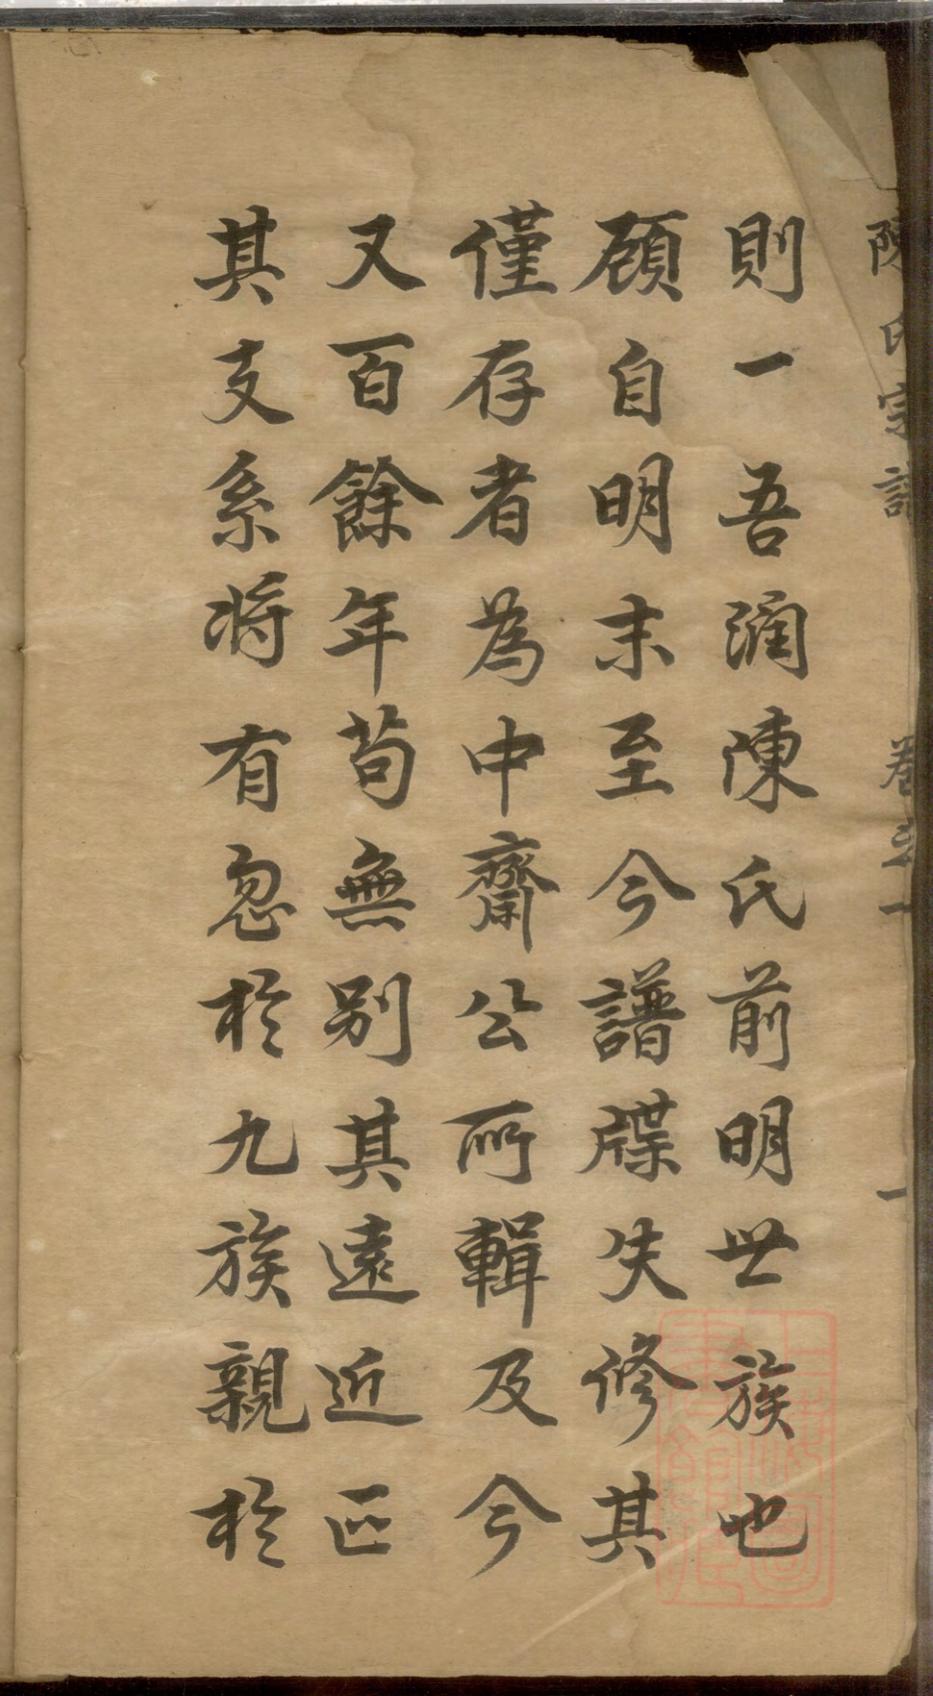 陳氏宗譜 卷之一 一
則一吾潤陳氏前明世族也
顧自明末至今譜牒失修其
僅存者為中齋公所輯及今
又百餘年苟無別其遠近區
其支系将有忽於九族親於
上海圖書館藏